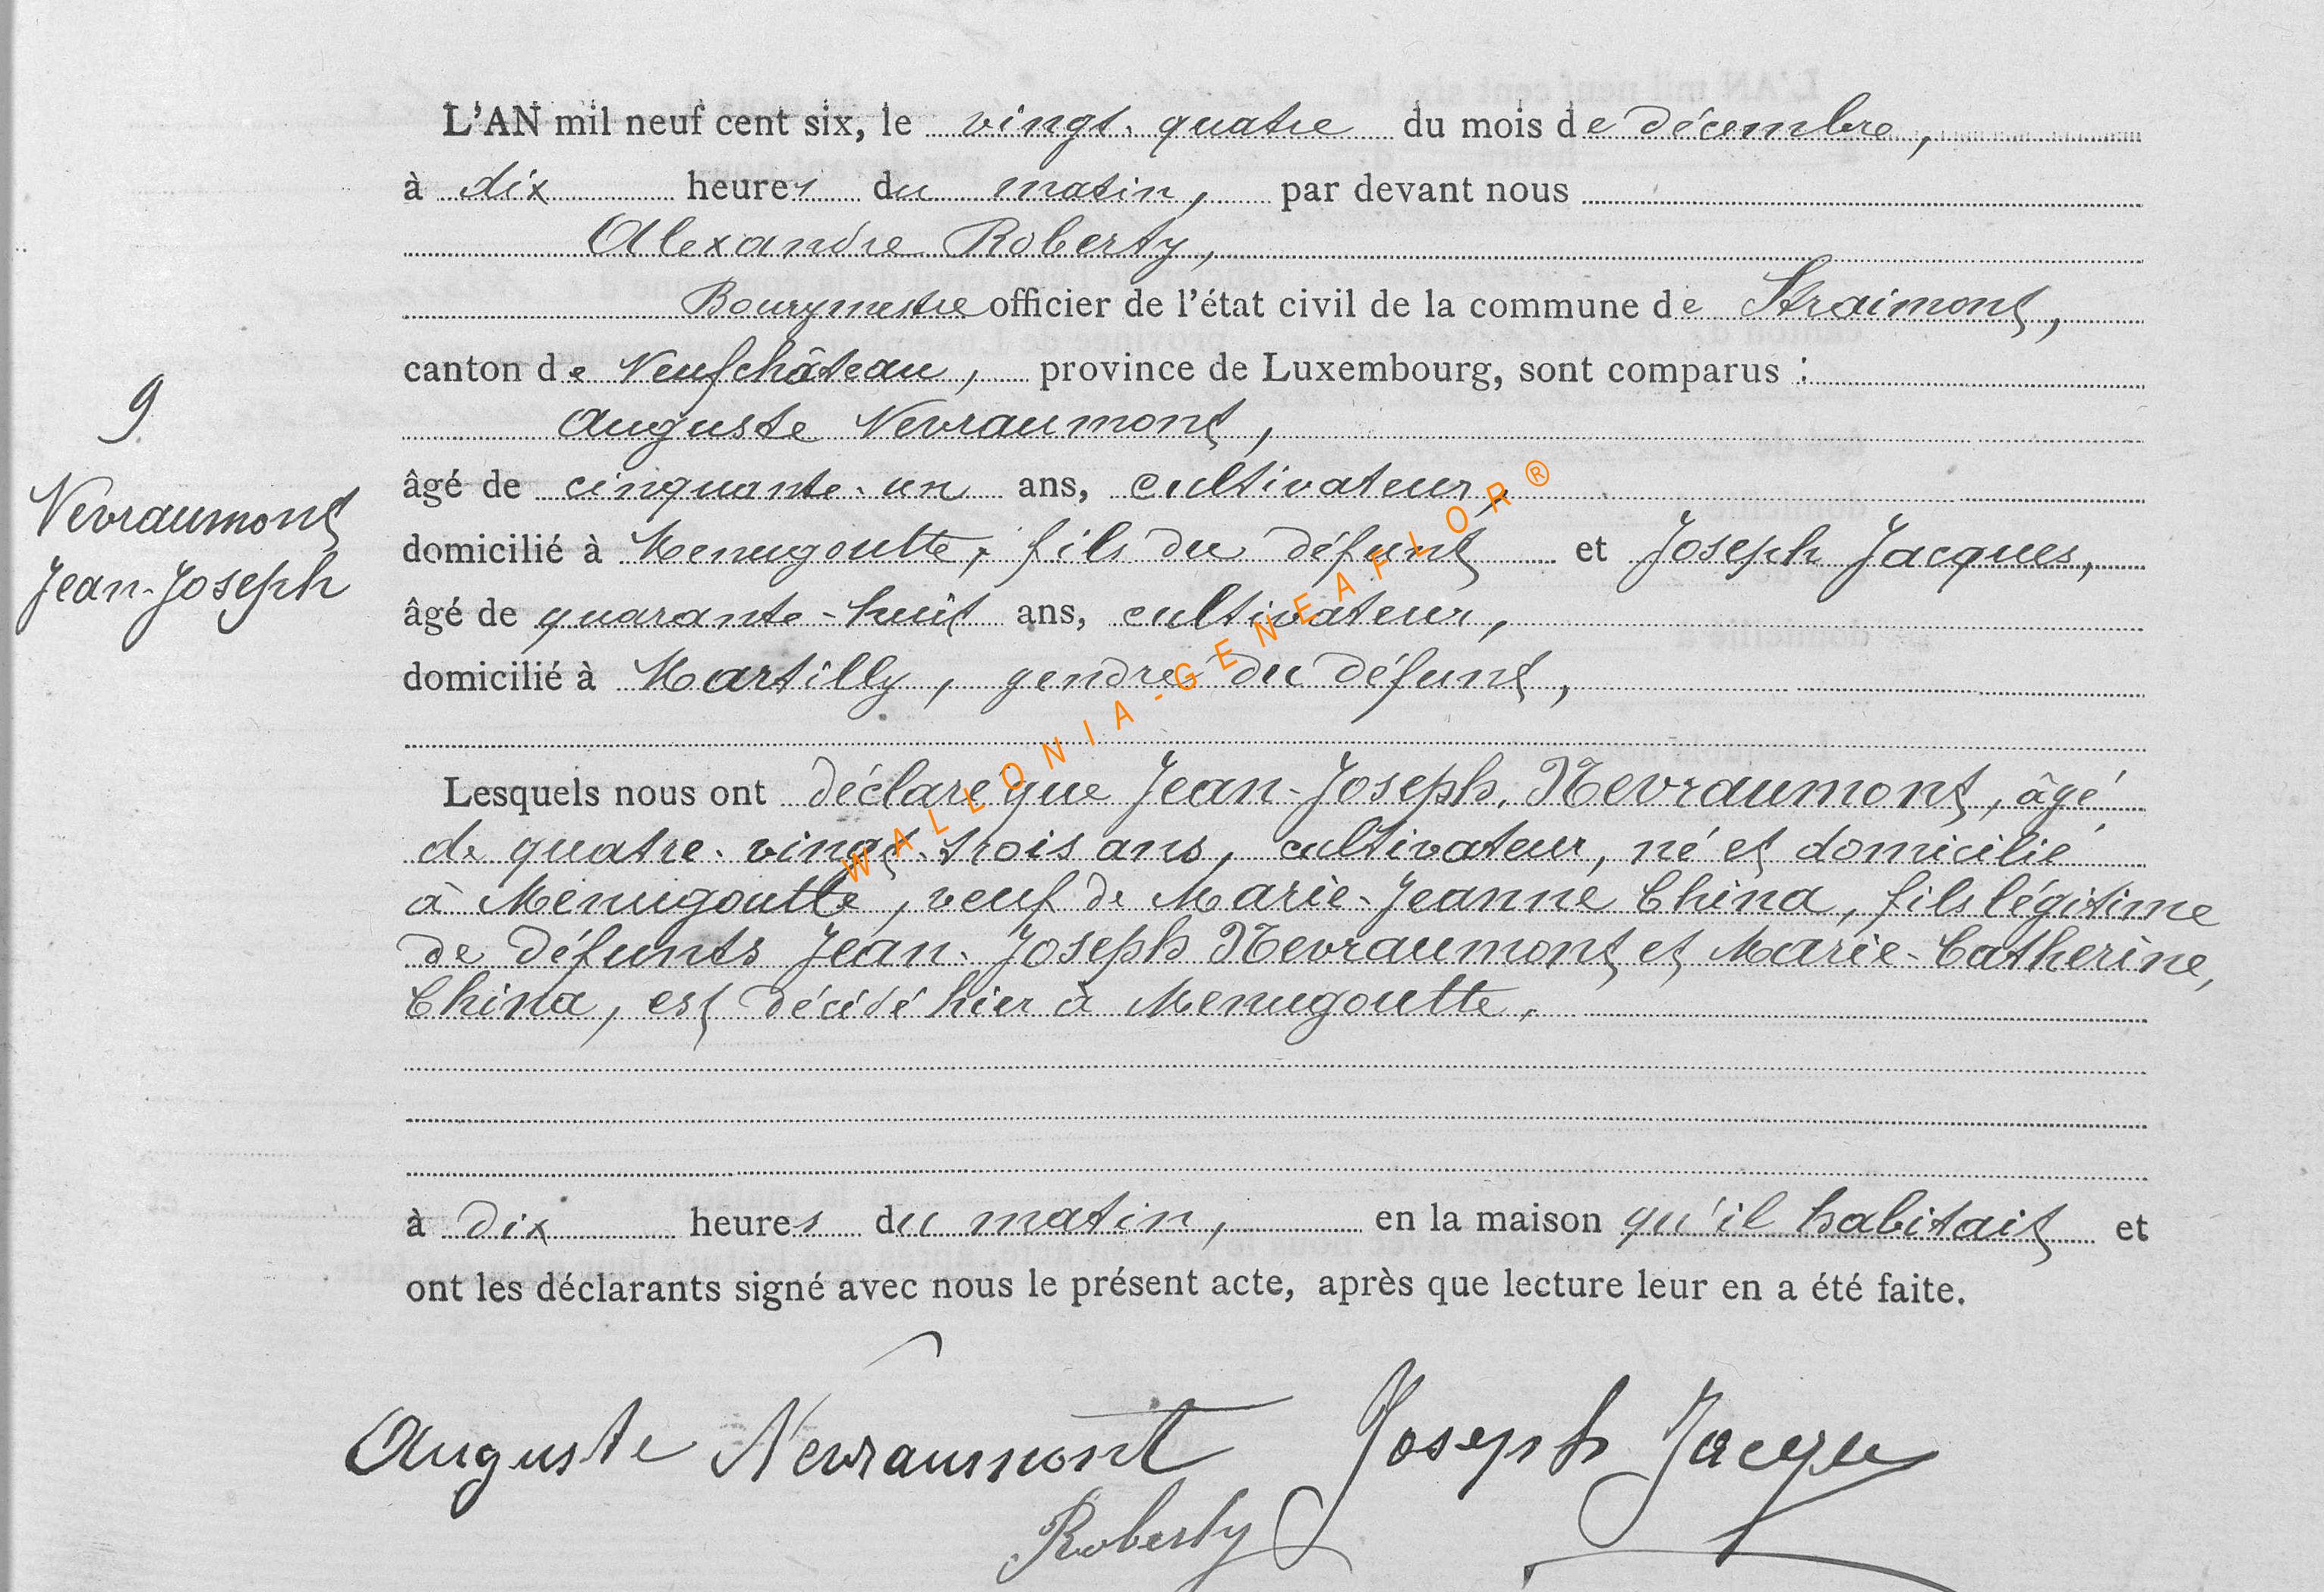 L'AN mil neuf cent six, le vingt-quatre du mois de décembre,
à dix heures du matin, par devant nous
Alexandre Roberty,
Bourgmestre officier de l'état civil de la commune de Straimont,
canton de Neufchâteau, province de Luxembourg, sont comparus :
Auguste Nevraumont,
âgé de cinquante-un ans, cultivateur,
domicilié à Menugoutte, fils du défunt et Joseph Jacques,
âgé de quarante-huit ans, cultivateur,
domicilié à Martilly, gendre du défunt,
9
Nevraumont
Jean-Joseph
Lesquels nous ont déclaré que Jean-Joseph Nevraumont, âgé
de quatre-vingt-trois ans, cultivateur, né et domicilié
à Menugoutte, veuf de Marie-Jeanne China, fils légitime
de défunts Jean-Joseph Nevraumont et Marie-Catherine,
China, est décédé hier à Menugoutte,
à dix heures du matin, en la maison qu'il habitait et
ont les déclarants signé avec nous le présent acte, après que lecture leur en a été faite.
Auguste Nevraumont Joseph Jacque
Roberty
WALLONIA-GENEAFLOR®